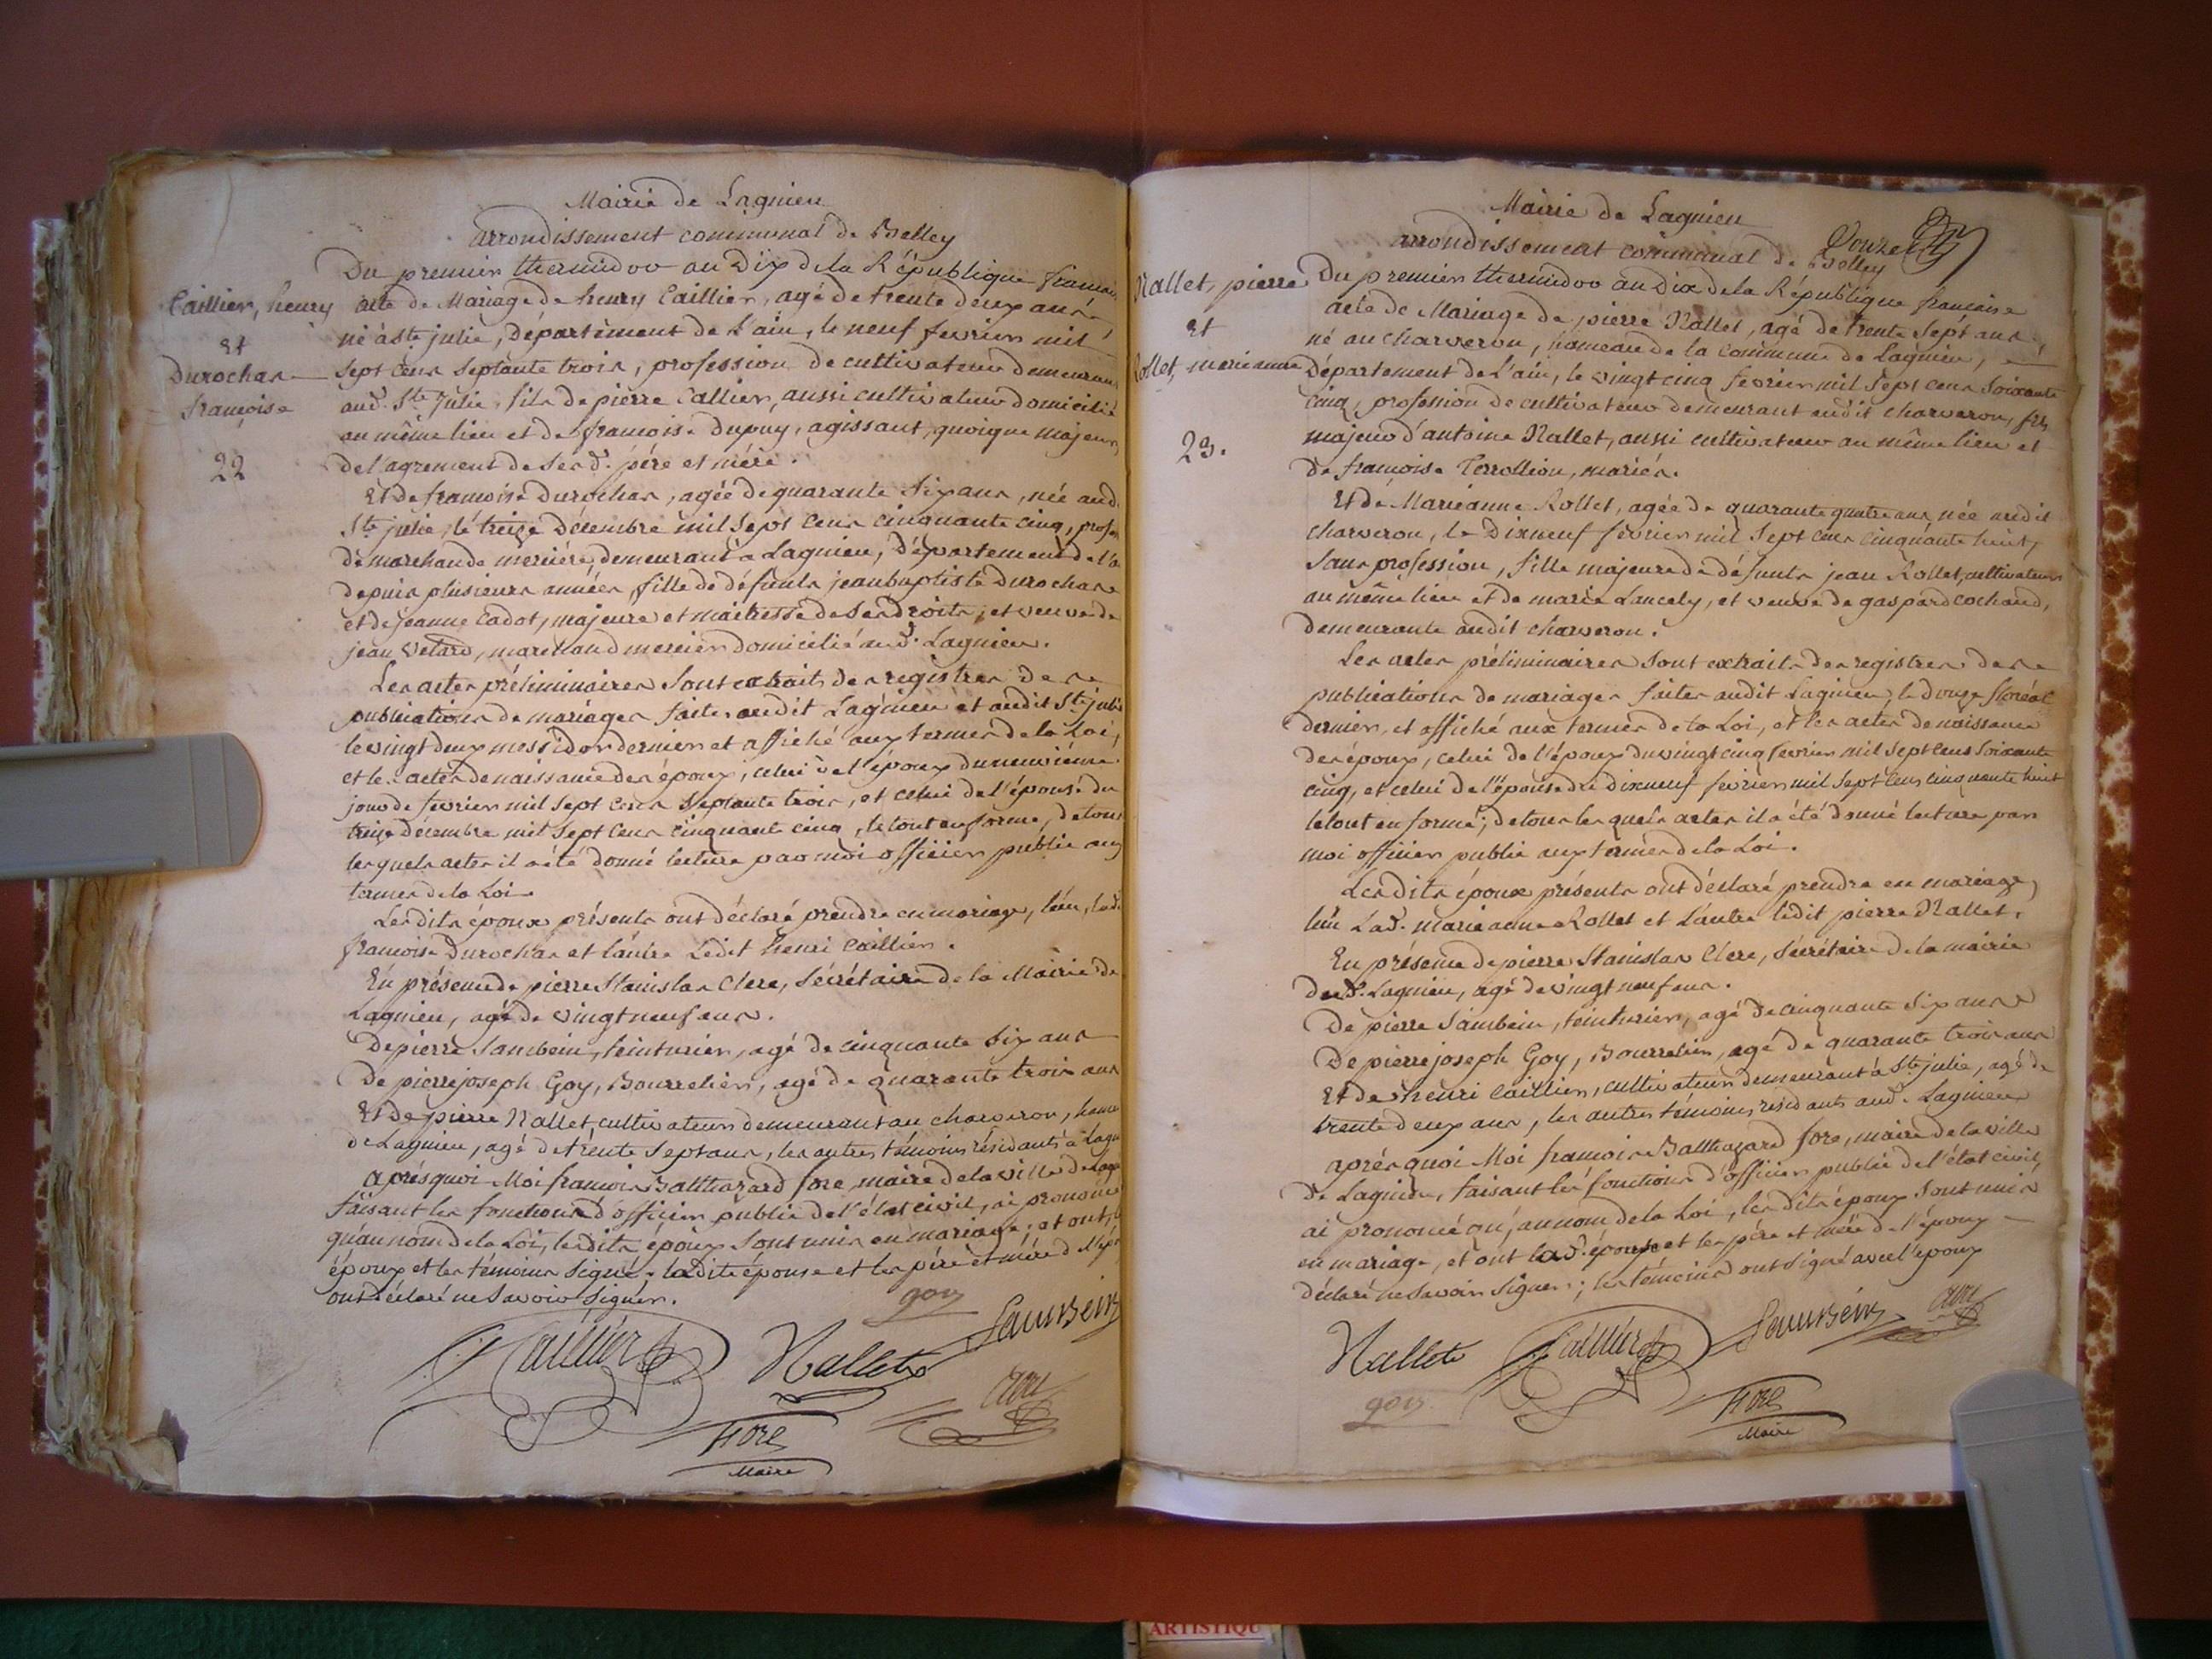 Mairie de Lagnieu
arrondissement communal de Belley
Du premier thermidor an Dix de la République francais
Caillier, henry
Et
Durochas
francoise
22
acte de Mariage de henry Caillier, agé de trente deux ans
né à Ste julie, département de L'ain, le neuf fevrier mil
sept cens septante trois, profession de cultivateur demeurant
aud. Ste Julie, fils de pierre Callier, aussi cultivateur domicilié
au même lieu et de francoise dupuy, agissant, quoique majeur,
de l'agrement de ses d. pére et mére.
Et de francoise durochas, agée de quarante six ans, née aud.
Ste julie, le treize décembre mil sept cens cinquante cinq, profes
de marchande merciére, demeurant à Lagnieu, département de l'a
depuis plusieurs années, fille de défunts jean baptiste durochas
et de jeanne Cadot, majeure et maitresse de ses droits, et veuve de
jean Vetard, marchand mercier domicilié aud. Lagnieu.
Les actes préliminaires sont extraits des registres de
publications de mariages faites audit Lagnieu et audit Ste julie
le vingt deux messidor dernier et affiché aux termes de la Loi,
et les actes de naissance des époux, celui de l'époux du neuviéme
jour de fevrier mil sept cens septante trois, et celui de l'épouse du
treize décembre mil sept cens cinquante cinq, le tout en forme, de tous
lesquels actes il a été donné lecture par moi officier public aux
termes de la Loi.
Lesdits époux présents ont déclaré prendre en mariage, l'un, lad.
francoise Durochas et l'autre Ledit henri Caillier.
En présence de pierre Stanislas Clerc, Sécrétaire de la Mairie de
Lagnieu, agé de vingt neuf ans.
De pierre Sambein, teinturier, agé de cinquante six ans
De pierre joseph Goy, Bourrelier, agé de quarante trois ans
Et de pierre Nallet, cultivateur demeurant au charveron, hame
de Lagnieu, agé de trente sept ans, les autres témoins résidants à Lagn
aprés quoi Moi francois Balthazard fore, maire de la ville de Lagn
faisant les fonctions d'officier public de l'état civil, ai prononcé
qu'au nom de la Loi, lesdits époux sont unis en mariage; et ont, l
époux et les témoins signé; ladite épouse et les pére et mére de l'épo
ont déclaré ne savoir signer.
goy
Sambein
Caillier
Nallet
Clerc
Fore
Maire
Mairie de Lagnieu
arrondissement communal de Belley
Douze
Nallet, pierre
Et
Rollet, marieanne
23.
Du premier thermidor an dix de la République francaise
acte de Mariage de pierre Nallet, agé de trente sept ans,
né au charveron, hameau de la commune de Lagnieu,
département de L'ain, le vingt cinq fevrier mil sept cens soixante
cinq, profession de cultivateur demeurant audit charveron, fils
majeur d'antoine Nallet, aussi cultivateur au même lieu et
de francoise Terrollion, mariés.
Et de Marieanne Rollet, agée de quarante quatre ans née audit
charveron, le Dixneuf février mil sept cens cinquante huit,
sans profession, fille majeure de défunts jean Rollet, cultivateur
au même lieu et de marie Lancely, et veuve de gaspard cochaud,
demeurante audit charveron.
Les actes préliminaires sont extraits des registres de
publications de mariages faites audit Lagnieu, le douze floréal
dernier, et affiché aux termes de la Loi, et les actes de naissance
des époux, celui de l'époux du vingt cinq fevrier mil sept cens soixante
cinq, et celui de l'épouse du dixneuf fevrier mil sept cens cinquante huit
le tout en forme; de tous les quels actes il a été donné lecture par
moi officier public aux termes de la Loi.
Lesdits époux présents ont déclaré prendre en mariage,
l'un Lad. marieanne Rollet et L'autre ledit pierre Nallet.
En présence de pierre Stanislas Clerc, Sécrétaire de la mairie
dud. Lagnieu, agé de vingt neuf ans.
De pierre Sambein, teinturier, agé de cinquante six ans
De pierre joseph Goy, Bourrelier, agé de quarante trois ans
Et de henri Caillier, cultivateur demeurant à Ste julie, agé de
trente deux ans, les autres témoins residants aud. Lagnieu
aprés quoi Moi francois Balthazard fore, maire de la ville
de Lagnieu, faisant les fonctions d'officier public de l'état civil,
ai prononcé qu'au nom de la Loi, lesdits époux sont unis
en mariage, et ont lad. épouse et les pére et mére de l'époux
déclaré ne savoir signer; les témoins ont signé avec l'époux
Nallet
Caillier
Sambein
Clerc
goy
Fore
Maire
ARTISTIQU